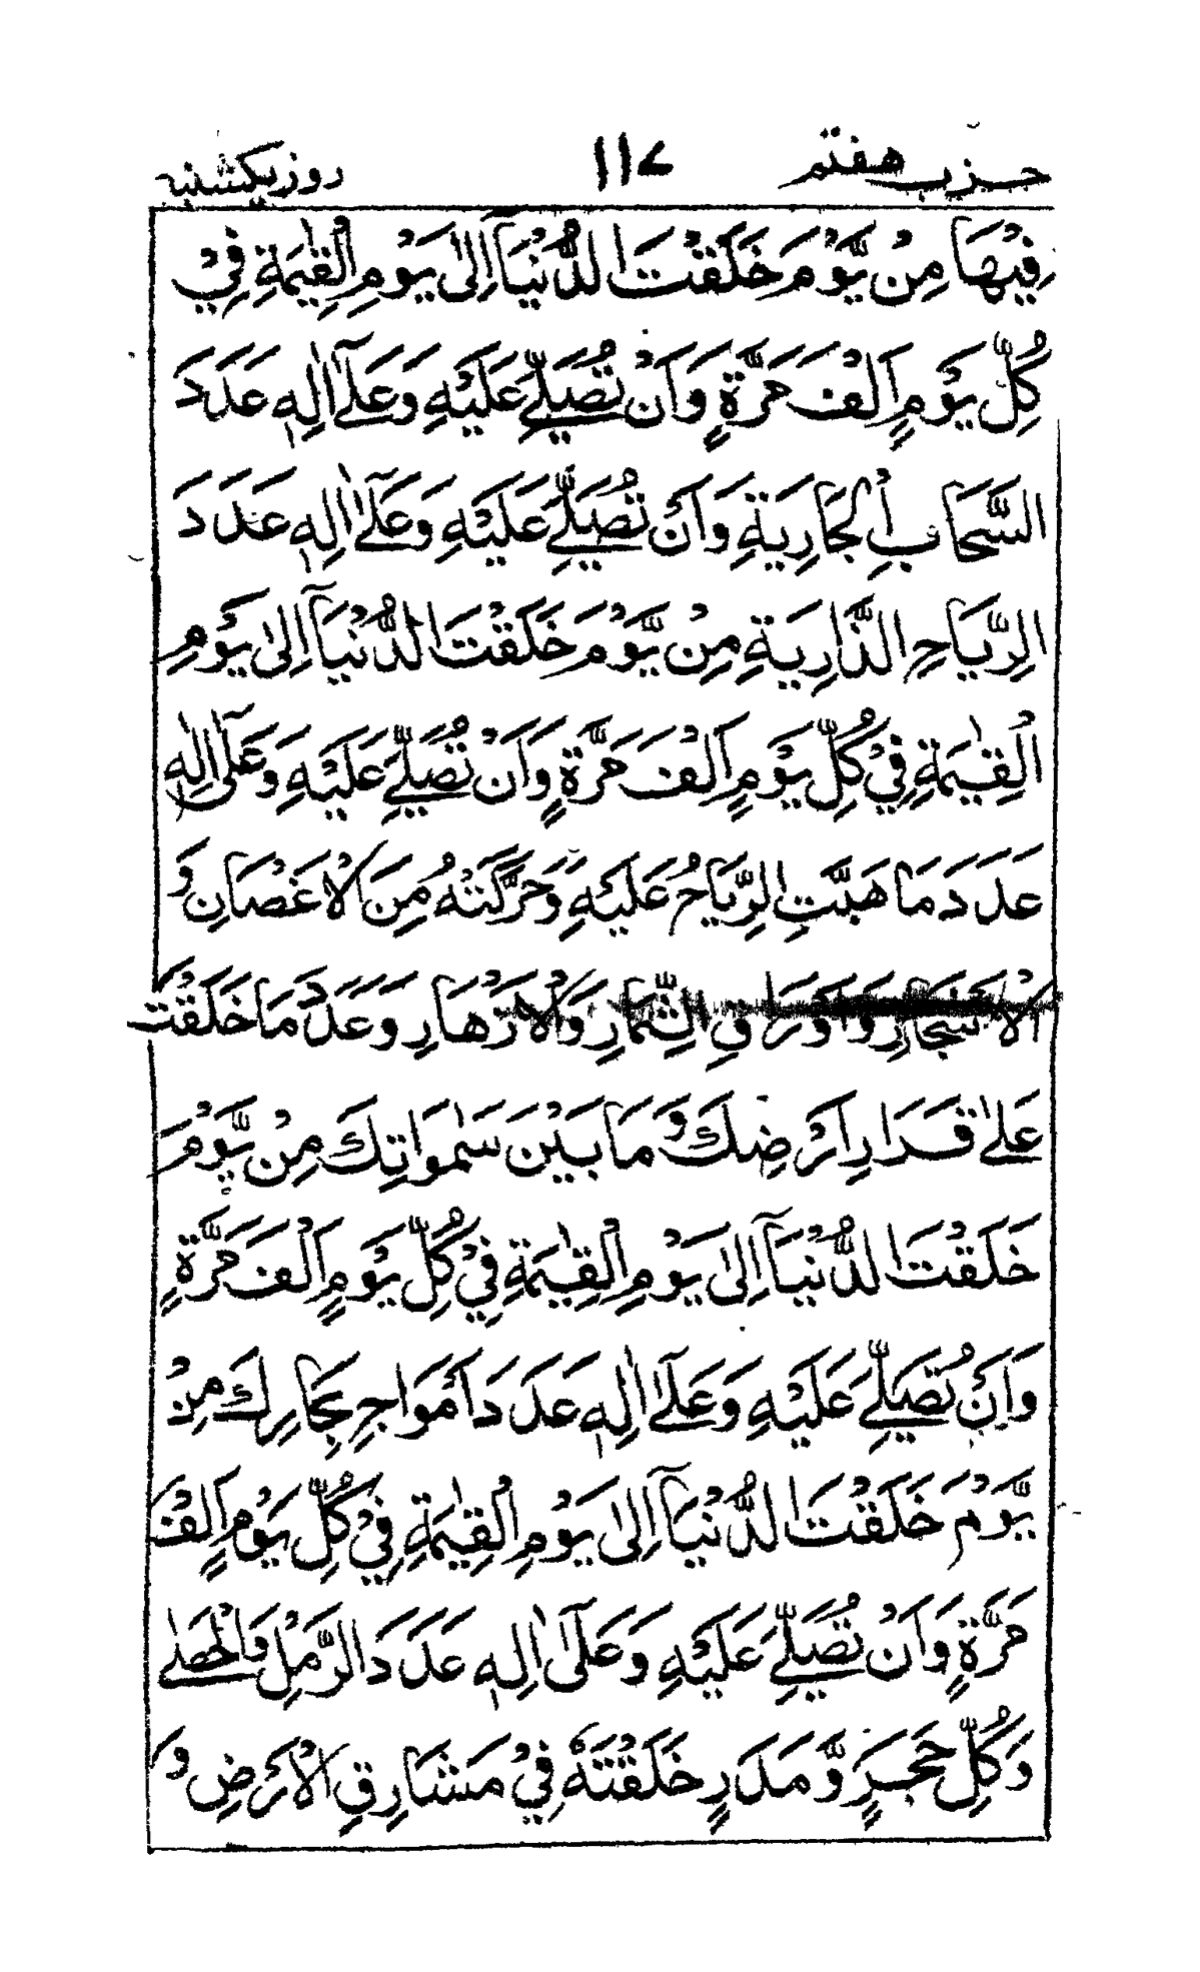 حزب هفتم ۱۱۷ روز یکشنبه
فِيْهَا مِنْ يَّوْمَ خَلَقْتَ الدُّنْيَآ اِلٰى يَوْمِ الْقِيٰمَةِ فِيْ
كُلِّ يَوْمٍ اَلْفَ مَرَّةٍ وَاَنْ تُصَلِّيَ عَلَيْهِ وَعَلٰٓى اٰلِهٖ عَدَدَ
السَّحَابِ الْجَارِيَةِ وَاَنْ تُصَلِّيَ عَلَيْهِ وَعَلٰٓى اٰلِهٖ عَدَدَ
الرِّيَاحِ الذَّارِيَةِ مِنْ يَّوْمَ خَلَقْتَ الدُّنْيَآ اِلٰى يَوْمِ
الْقِيٰمَةِ فِيْ كُلِّ يَوْمٍ اَلْفَ مَرَّةٍ وَاَنْ تُصَلِّيَ عَلَيْهِ وَعَلٰٓى اٰلِهٖ
عَدَدَ مَا هَبَّتِ الرِّيَاحُ عَلَيْهِ وَحَرَّكَتْهُ مِنَ الْاَغْصَانِ وَ
الْاَشْجَارِ وَاَوْرَاقِ الثِّمَارِ وَالْاَزْهَارِ وَعَدَدَ مَا خَلَقْتَ
عَلٰى قَرَارِ اَرْضِكَ وَمَا بَيْنَ سَمٰوَاتِكَ مِنْ يَّوْمَ
خَلَقْتَ الدُّنْيَآ اِلٰى يَوْمِ الْقِيٰمَةِ فِيْ كُلِّ يَوْمٍ اَلْفَ مَرَّةٍ
وَاَنْ تُصَلِّيَ عَلَيْهِ وَعَلٰٓى اٰلِهٖ عَدَدَ اَمْوَاجِ بِحَارِكَ مِنْ
يَّوْمَ خَلَقْتَ الدُّنْيَآ اِلٰى يَوْمِ الْقِيٰمَةِ فِيْ كُلِّ يَوْمٍ اَلْفَ
مَرَّةٍ وَاَنْ تُصَلِّيَ عَلَيْهِ وَعَلٰٓى اٰلِهٖ عَدَدَ الرَّمْلِ وَالْحَصٰى
وَكُلِّ حَجَرٍ وَّمَدَرٍ خَلَقْتَهٗ فِيْ مَشَارِقِ الْاَرْضِ وَ